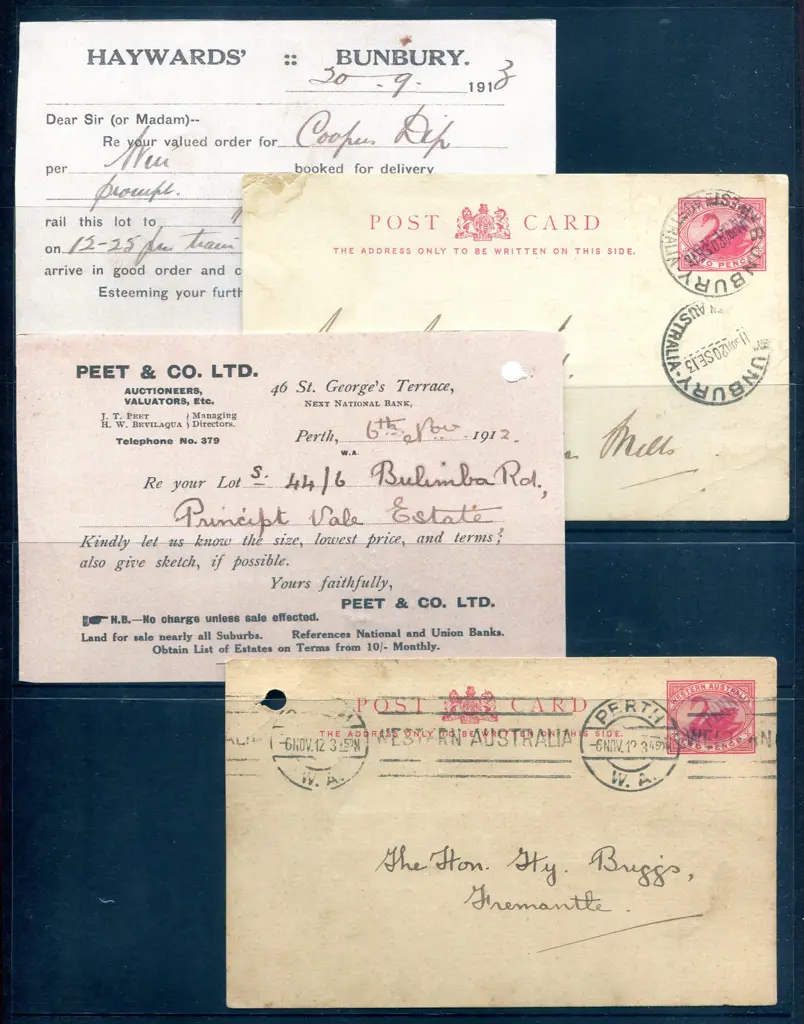 HAYWARDS' :: BUNBURY.
20-9-1913
Dear Sir (or Madam)--
Re your valued order for Coopers Dip
per booked for delivery
prompt.
rail this lot to
on 12-25 pm train
arrive in good order and c
Esteeming your furth
POST CARD
THE ADDRESS ONLY TO BE WRITTEN ON THIS SIDE.
TWO PENCE
BUNBURY
WESTERN AUSTRALIA
BUNBURY
20SE13
WESTERN AUSTRALIA
Mills
PEET & CO. LTD.
AUCTIONEERS,
VALUATORS, Etc.
J. T. PEET } Managing
H. W. BEVILAQUA } Directors.
Telephone No. 379
46 St. George's Terrace,
NEXT NATIONAL BANK,
Perth, 6th Nov 1912.
W.A.
Re your Lot s. 44/6 Bulimba Rd,
Princípt Vale Estate
Kindly let us know the size, lowest price, and terms;
also give sketch, if possible.
Yours faithfully,
PEET & CO. LTD.
N.B.—No charge unless sale effected.
Land for sale nearly all Suburbs. References National and Union Banks.
Obtain List of Estates on Terms from 10/- Monthly.
POST CARD
THE ADDRESS ONLY TO BE WRITTEN ON THIS SIDE.
WESTERN AUSTRALIA
TWO PENCE
-6NOV.12 3 45PM
W.A.
WESTERN AUSTRALIA
PERTH
-6NOV.12 3 45PM
W.A.
The Hon. Hy. Briggs,
Fremantle.